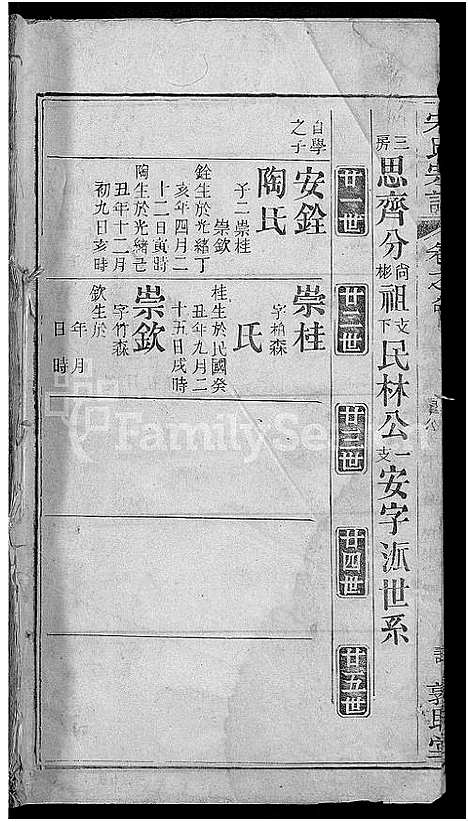 三房思齊分尙彬祖支下民林公一支安字派世系
廿一世
廿二世
廿三世
廿四世
廿五世
自學之子
安銓
陶氏
子二崇桂
崇欽
銓生於光緒丁
亥年四月二
十二日寅時
陶生於光緒己
丑年十二月
初九日亥時
崇桂
字柏森
氏
桂生於民國癸
丑年九月二
十五日戌時
崇欽
字竹森
欽生於
年 月
日 時
FamilySe